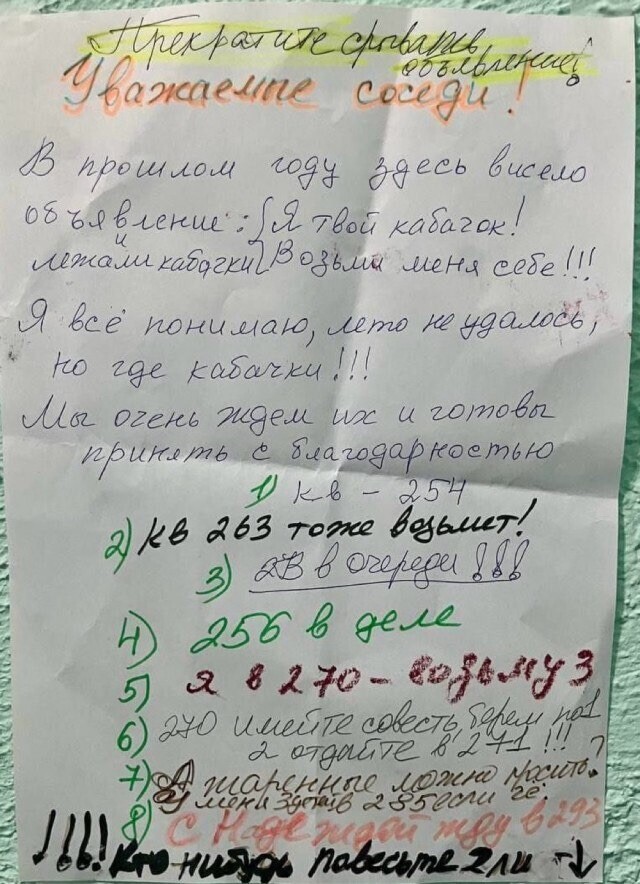 Прекратите срывать
объявление!
Уважаемые соседи!
В прошлом году здесь висело
объявление: {Я твой кабачок!
и
лежали кабачки{Возьми меня себе!!!
Я всё понимаю, лето не удалось,
но где кабачки!!!
Мы очень ждем их и готовы
принять с благодарностью
1) кв - 254
2) кв 263 тоже возьмет!
3) 2В в очереди!!!
4) 256 в деле
5) я в 270 - возьму 3
6) 270 имейте совесть берем по 1
2 отдайте в 271!!!
7) А жаренные можно просить?
У меня в 295 если чё.
8) С Надеждой жду в 293
!!!! Кто нибудь повесьте 2 ли ↓